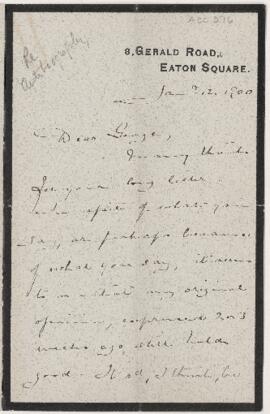 ACC 276
Re
8, GERALD ROAD,
EATON SQUARE.
Jan 12. 1900
Dear George,
Many thanks
for your long letter.
In spite of what you
say, or perhaps because
of what you say, it seems
to me that my original
opinion, expressed 2 or 3
weeks ago, still holds
good. It is, I think, be